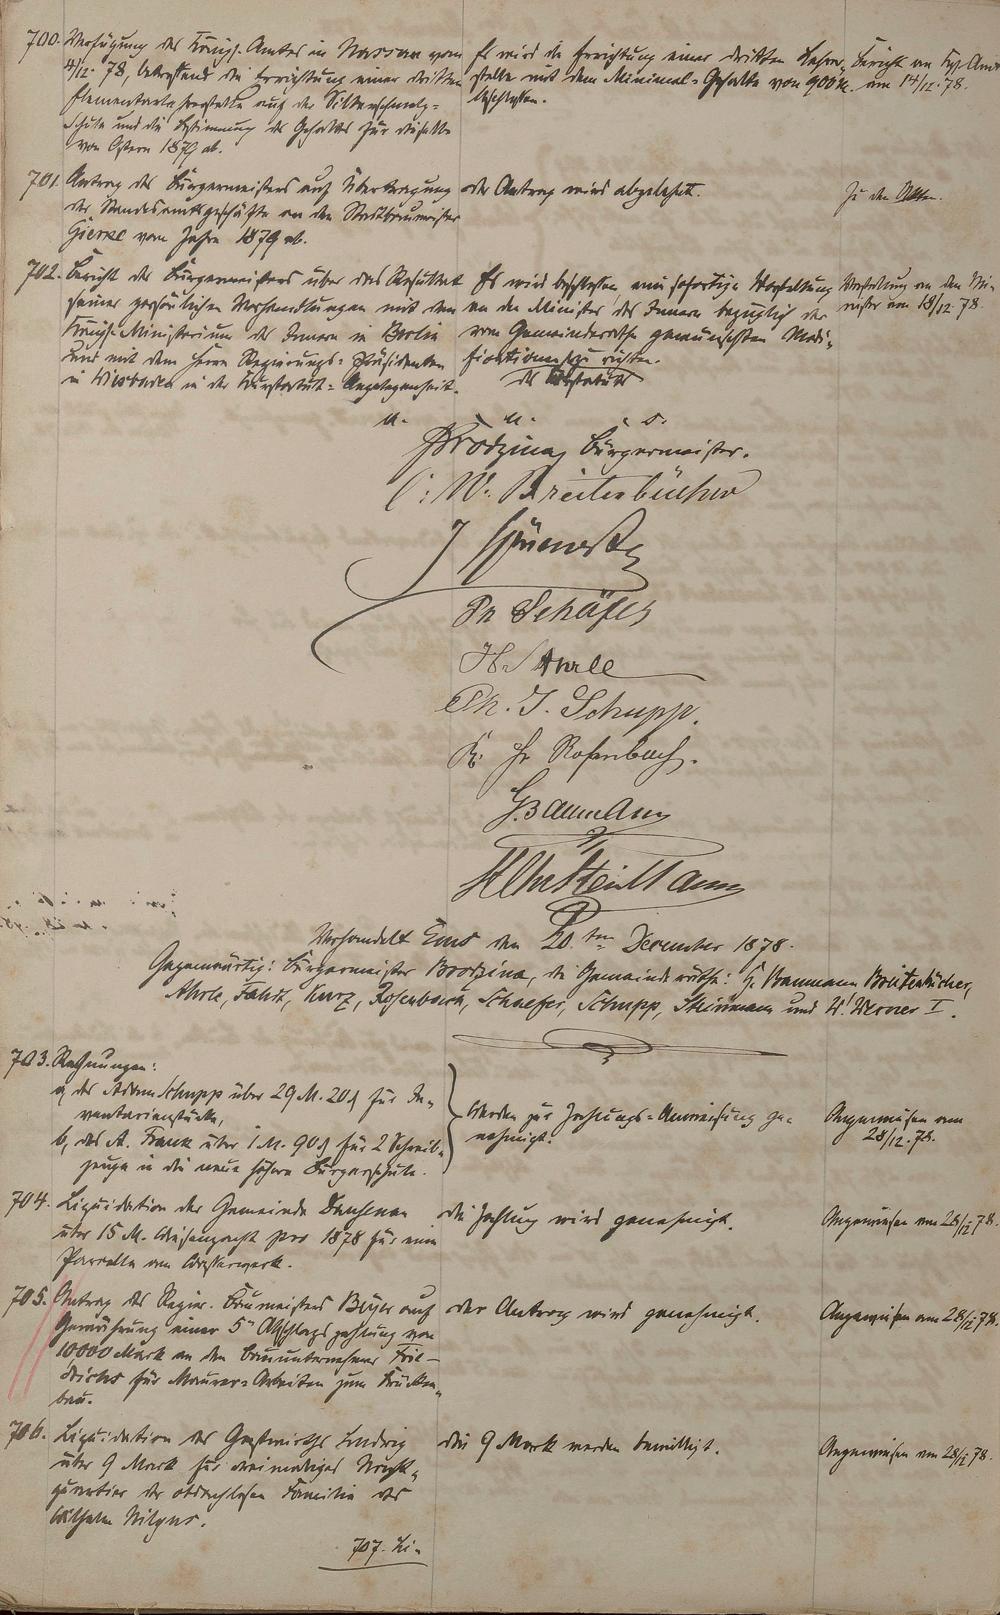 700. Verfügung des Königl. Amtes in Nassau vom
4/12. 78, betreffend die Errichtung einer dritten
Elementarlehrerstelle auf der Silberschmelz-
Schule und die Bestimmung des Gehaltes für dieselbe
von Ostern 1879 ab.
Es wird die Errichtung einer dritten Lehrer-
stelle mit dem Minimal-Gehalte von 900 M.
beschlossen.
Bericht an Kgl. Amt
am 14/12. 78.
701. Antrag des Bürgermeisters auf Übertragung
der Standesamtsgeschäfte an den Stadtbaumeister
Gierke vom Jahre 1879 ab.
Der Antrag wird abgelehnt.
Zu den Akten.
702. Bericht des Bürgermeisters über das Resultat
seiner persönlichen Verhandlungen mit dem
Königl. Ministerium des Innern in Berlin
und mit dem Herrn Regierungs-Präsidenten
in Wiesbaden in der Kurstatut-Angelegenheit.
Es wird beschlossen, eine sofortige Vorstellung
an den Minister des Innern bezüglich der
vom Gemeinderathe gewünschten Modi-
fikationen zu richten.
des Kurstatuts
Vorstellung an den Mi-
nister am 18/12 78.
u.
Brodzina, Bürgermeister.
C: W: Breitenbücher
Ph Schäfer
H. Ahrle
Ph. J. Schupp.
Rosenbach.
G. Baumann
Steinmann
Verhandelt Ems den 20.ten December 1878.
Gegenwärtig: Bürgermeister Brodzina, die Gemeinderäthe: G. Baumann Breitenbücher,
Ahrle, Fahdt, Kurz, Rosenbach, Schaefer, Schupp, Steinmann und W. Werner I.
703. Rechnungen:
a, des Adam Schupp über 29 M. 20 ₰ für In-
ventarienstücke,
b, des A. Frank über 1 M. 90 ₰ für 2 Schreib-
zeuge in die neue höhere Bürgerschule.
Werden zur Zahlungs-Anweisung ge-
nehmigt.
Angewiesen am
28/12. 78.
704. Liquidation der Gemeinde Dausenau
über 15 M. Wiesenpacht pro 1878 für eine
Parzelle am Wasserwerk.
Die Zahlung wird genehmigt.
Angewiesen am 28/12 78.
705. Antrag des Regier. Baumeisters Beyer auf
Gewährung einer 5ten Abschlagszahlung von
10000 Mark an den Bauunternehmer Frie-
drichs für Maurer-Arbeiten zum Brücken-
bau.
Der Antrag wird genehmigt.
Angewiesen am 28/12 78.
706. Liquidation des Gastwirths Ludwig
über 9 Mark für dreimaliges Nacht-
quartier der obdachlosen Familie des
Wilhelm Nilgus.
Die 9 Mark werden bewilligt.
Angewiesen am 28/12 78.
707. Li-